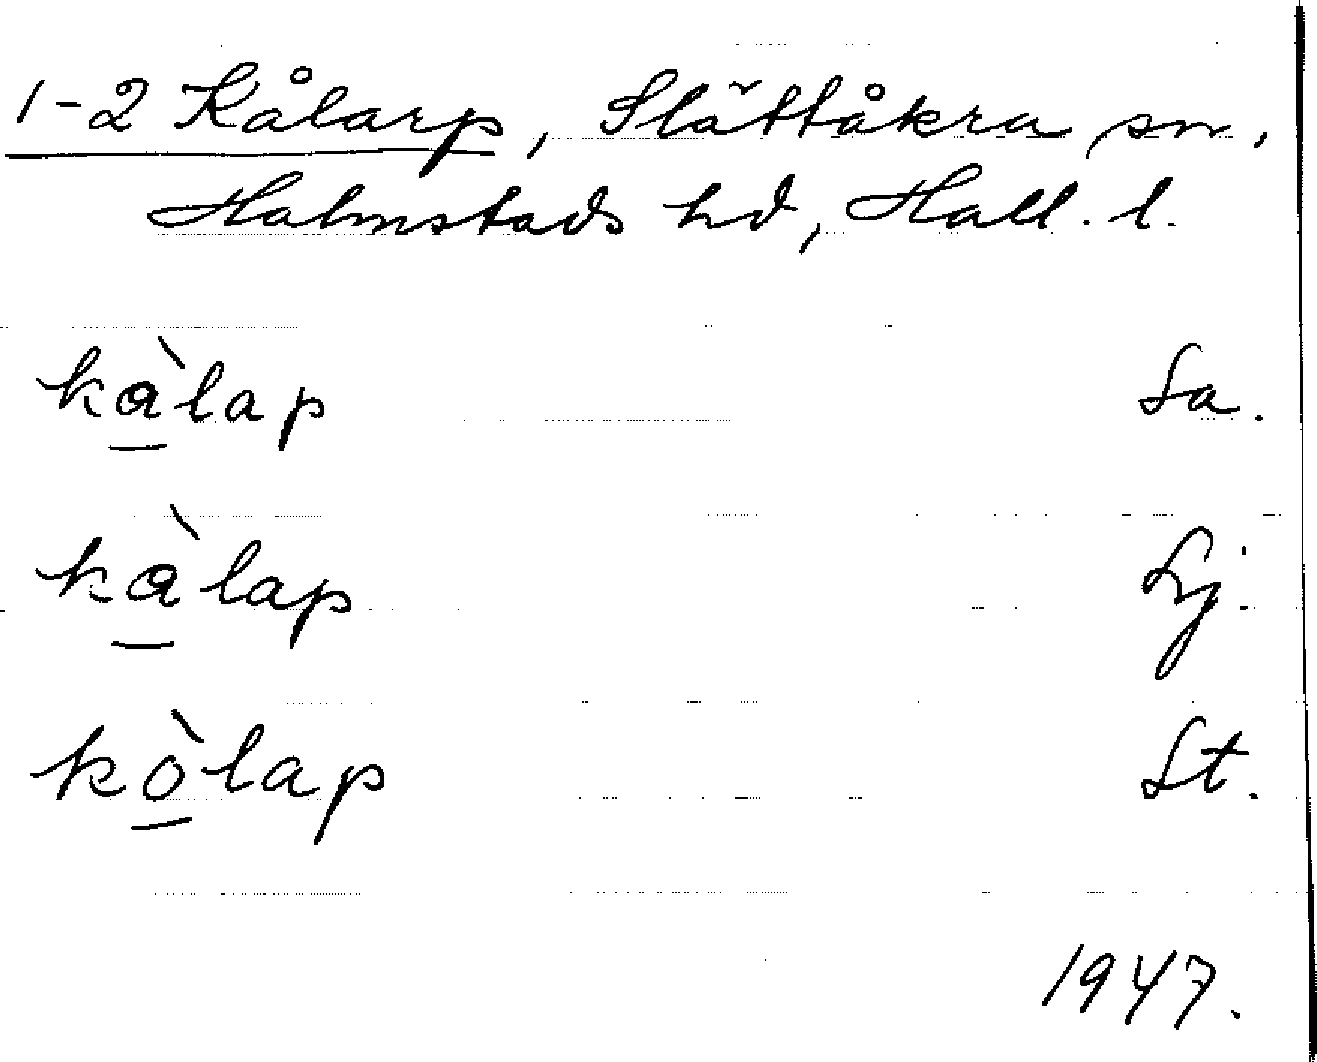 1-2 Kålarp, Slättåkra sn,
Halmstads hd, Hall. l.
kàlap Sa.
kàlap Lj.
kòlap St.
1947.